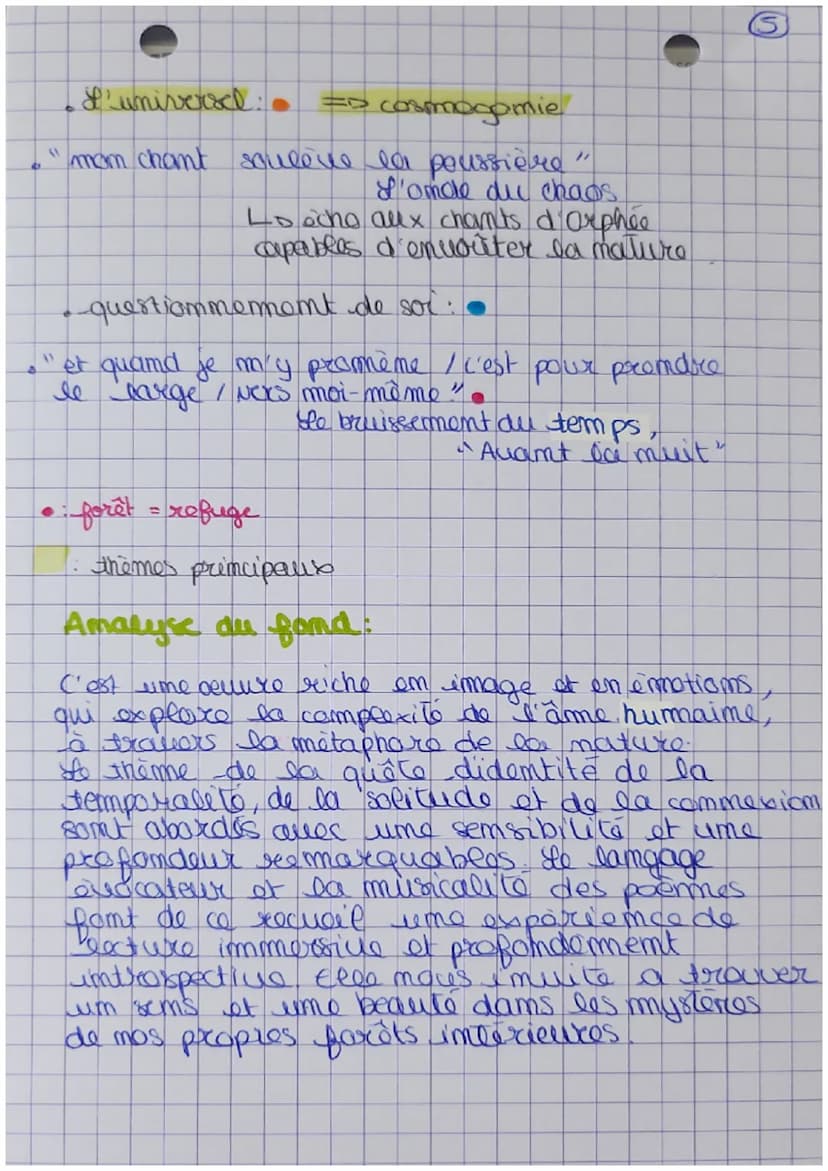 5
. L'universel : => cosmogonie
. "mon chant soulève la poussière"
L'onde du chaos
↳ écho aux chants d'Orphée
capables d'envoûter la nature
. -questionnement de soi :
. "et quand je m'y promène / c'est pour prendre
le large / vers moi-même".
Le bruissement du temps,
"Avant la nuit"
: forêt = refuge
: thèmes principaux
Analyse du fond :
C'est une œuvre riche en image et en émotions,
qui explore la complexité de l'âme humaine,
à travers la métaphore de la nature.
Le thème de la quête didentité de la
temporalité, de la solitude et de la connexion
sont abordés avec une sensibilité et une
profondeur remarquables. Le langage
évocateur et la musicalité des poèmes
font de ce recueil une expérience de
lecture immersive et profondemment
introspective, elle nous invite a trouver
un sens et une beauté dans les mystères
de nos propres forêts intérieures.